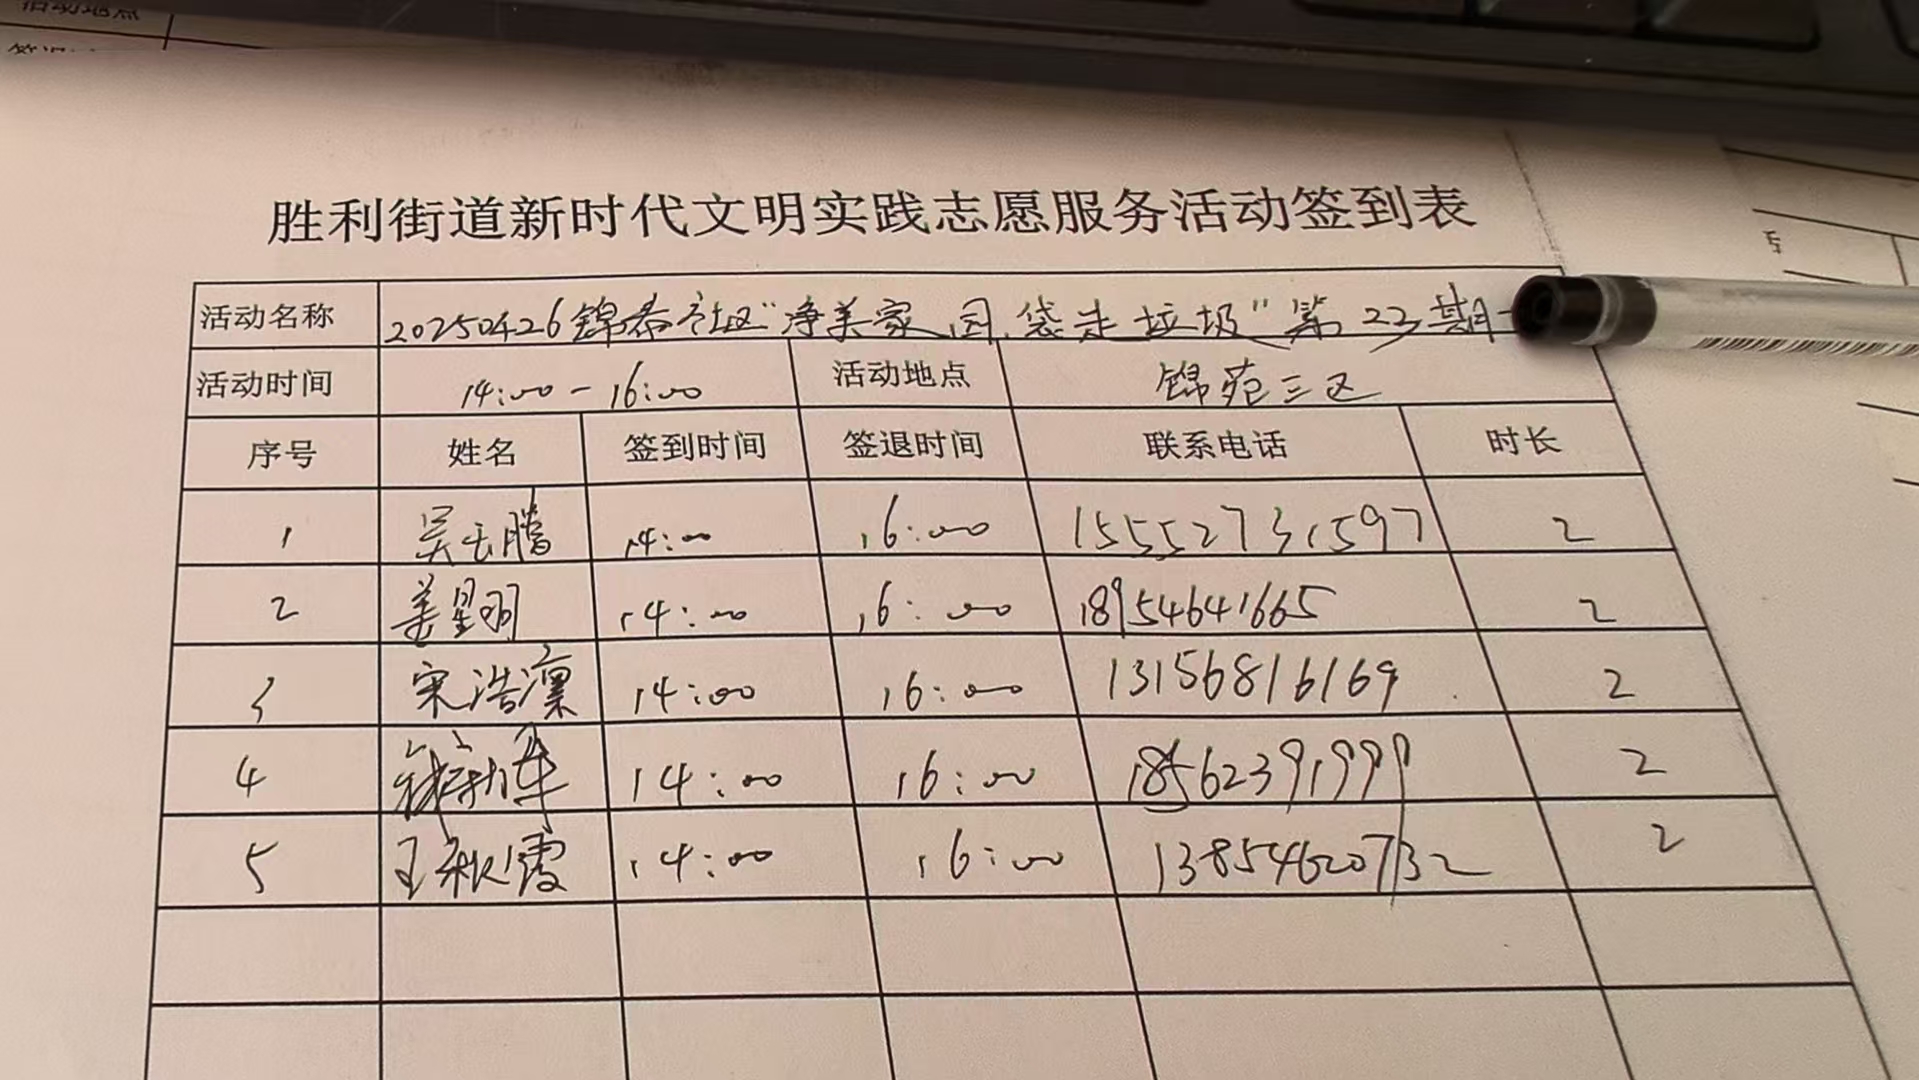 活动地点
胜利街道新时代文明实践志愿服务活动签到表
活动名称 20250426锦泰社区"净美家园,袋走垃圾"第23期
活动时间 14:00-16:00 活动地点 锦苑三区
序号 姓名 签到时间 签退时间 联系电话 时长
1 吴玉腾 14:00 16:00 15552731597 2
2 姜星羽 14:00 16:00 18954641665 2
3 宋浩凛 14:00 16:00 13156816169 2
4 14:00 16:00 18562391999 2
5 王秋霞 14:00 16:00 13854620732 2